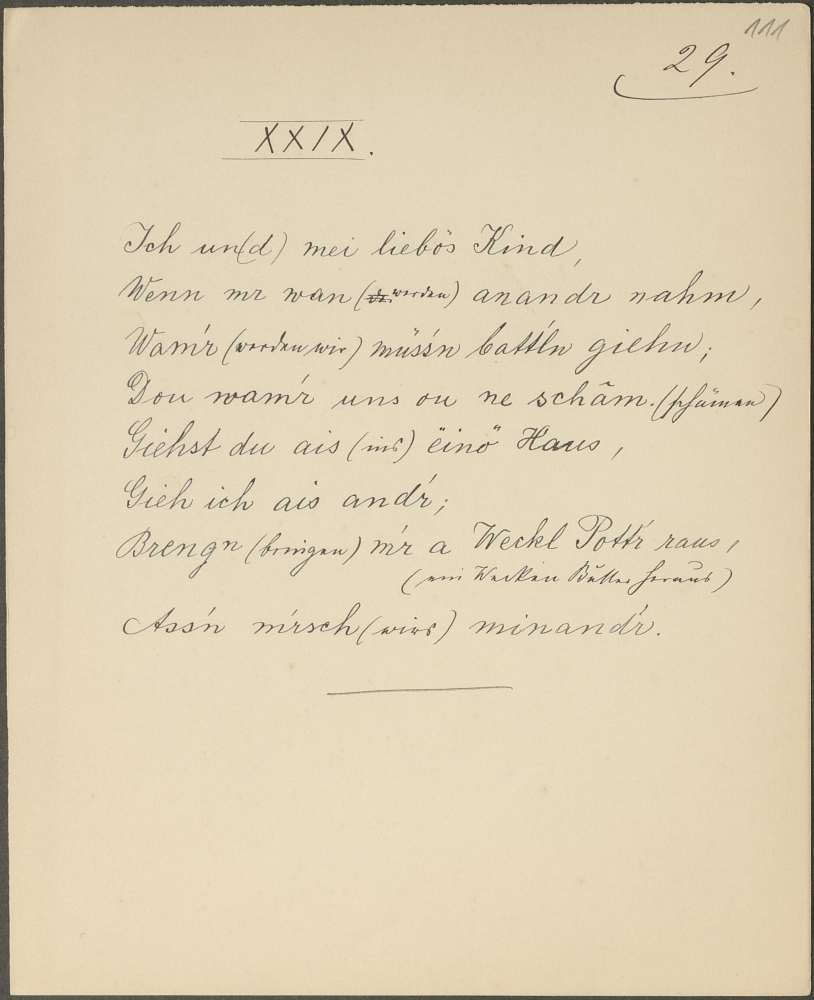 111
29.
XXIX.
Ich un(d) mei liebös Kind,
Wenn mr wan (werden) anandr nahm,
Wam'r (werden wir) müss'n batt'ln giehn;
Dou wam'r uns ou ne schâm. (schämen)
Giehst du ais (ins) ëinö Haus,
Gieh ich ais and'r;
Brengn (bringen) m'r a Weckl Pott'r raus,
(ein Wecken Butter heraus)
Ass'n m'rsch (wirs) minand'r.